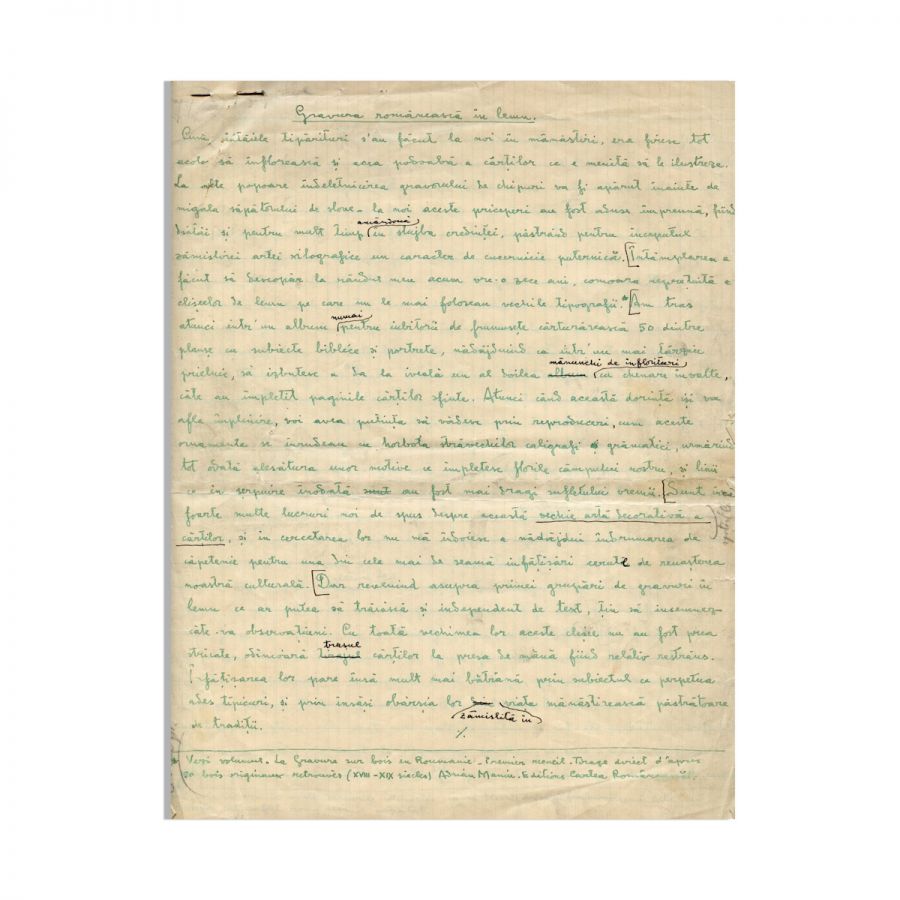 Gravura românească în lemn.
Cum, întâiele tipărituri s'au făcut la noi în mănăstiri, era firesc tot
acolo să înflorească și acea podoabă a cărților ce e menită să le ilustreze.
La alte popoare îndeletnicirea gravorului de chipuri va fi apărut înainte de
migala săpătorului de slove - la noi aceste priceperi au fost aduse împreună, fiind
amândouă
și pentru mult timp în slujba credinței, păstrând pentru începutul
zămislirei artei xilografice un caracter de cucernicie puternică. Întâmplarea a
făcut să descopăr la rândul meu acum vre-o zece ani, comoara neprețuită a
clișeelor de lemn pe care nu le mai foloseau vechile tipografii.* Am tras
numai
atunci într'un album pentru iubitorii de frumusețe cărturărească 50 dintre
planșe cu subiecte biblice și portrete, nădăjduind ca într'un mai târziu
mănunchi de înflorituri
prielnic, să izbutesc a da la iveală un al doilea album cu chenare învolte,
câte au împletit paginile cărților sfinte. Atunci când această dorință își va
afla împlinire, voi avea putința să vădesc prin reproduceri, cum aceste
ornamente se înrudeau cu horbota străvechilor caligrafi și grămatici, urmărind
tot odată alesătura unor motive ce împletesc florile câmpului nostru, și linii
ce în șerpuire înodată sunt au fost mai dragi sufletului vremii. Sunt încă
foarte multe lucruri noi de spus despre această vechie artă decorativă a
cărților, și în cercetarea lor nu mă îndoiesc a nădăjdui îndrumarea de
căpetenie pentru una din cele mai de seamă înfățișări cerute de renașterea
noastră culturală. Dar revenind asupra primei grupări de gravuri în
lemn ce ar putea să trăiască și independent de text, țin să însemnez
câte-va observațiuni. Cu toată vechimea lor aceste clișee nu au fost prea
trasul
stricate, odinioară tirajul cărților la presa de mână fiind relativ restrâns.
Înfățișarea lor pare însă mult mai bătrână prin subiectul ce perpetua
ades tipicuri, și prin însăși obârșia lor din viața mănăstirească păstrătoare
zămislită în
de tradiții.
%
* Vezi volumul - La Gravure sur bois en Roumanie - Premier recueil - Tirage direct d'après
50 bois originaux retrouvés (XVIII - XIX siècles) Adrian Maniu. Editions Cartea Românească.